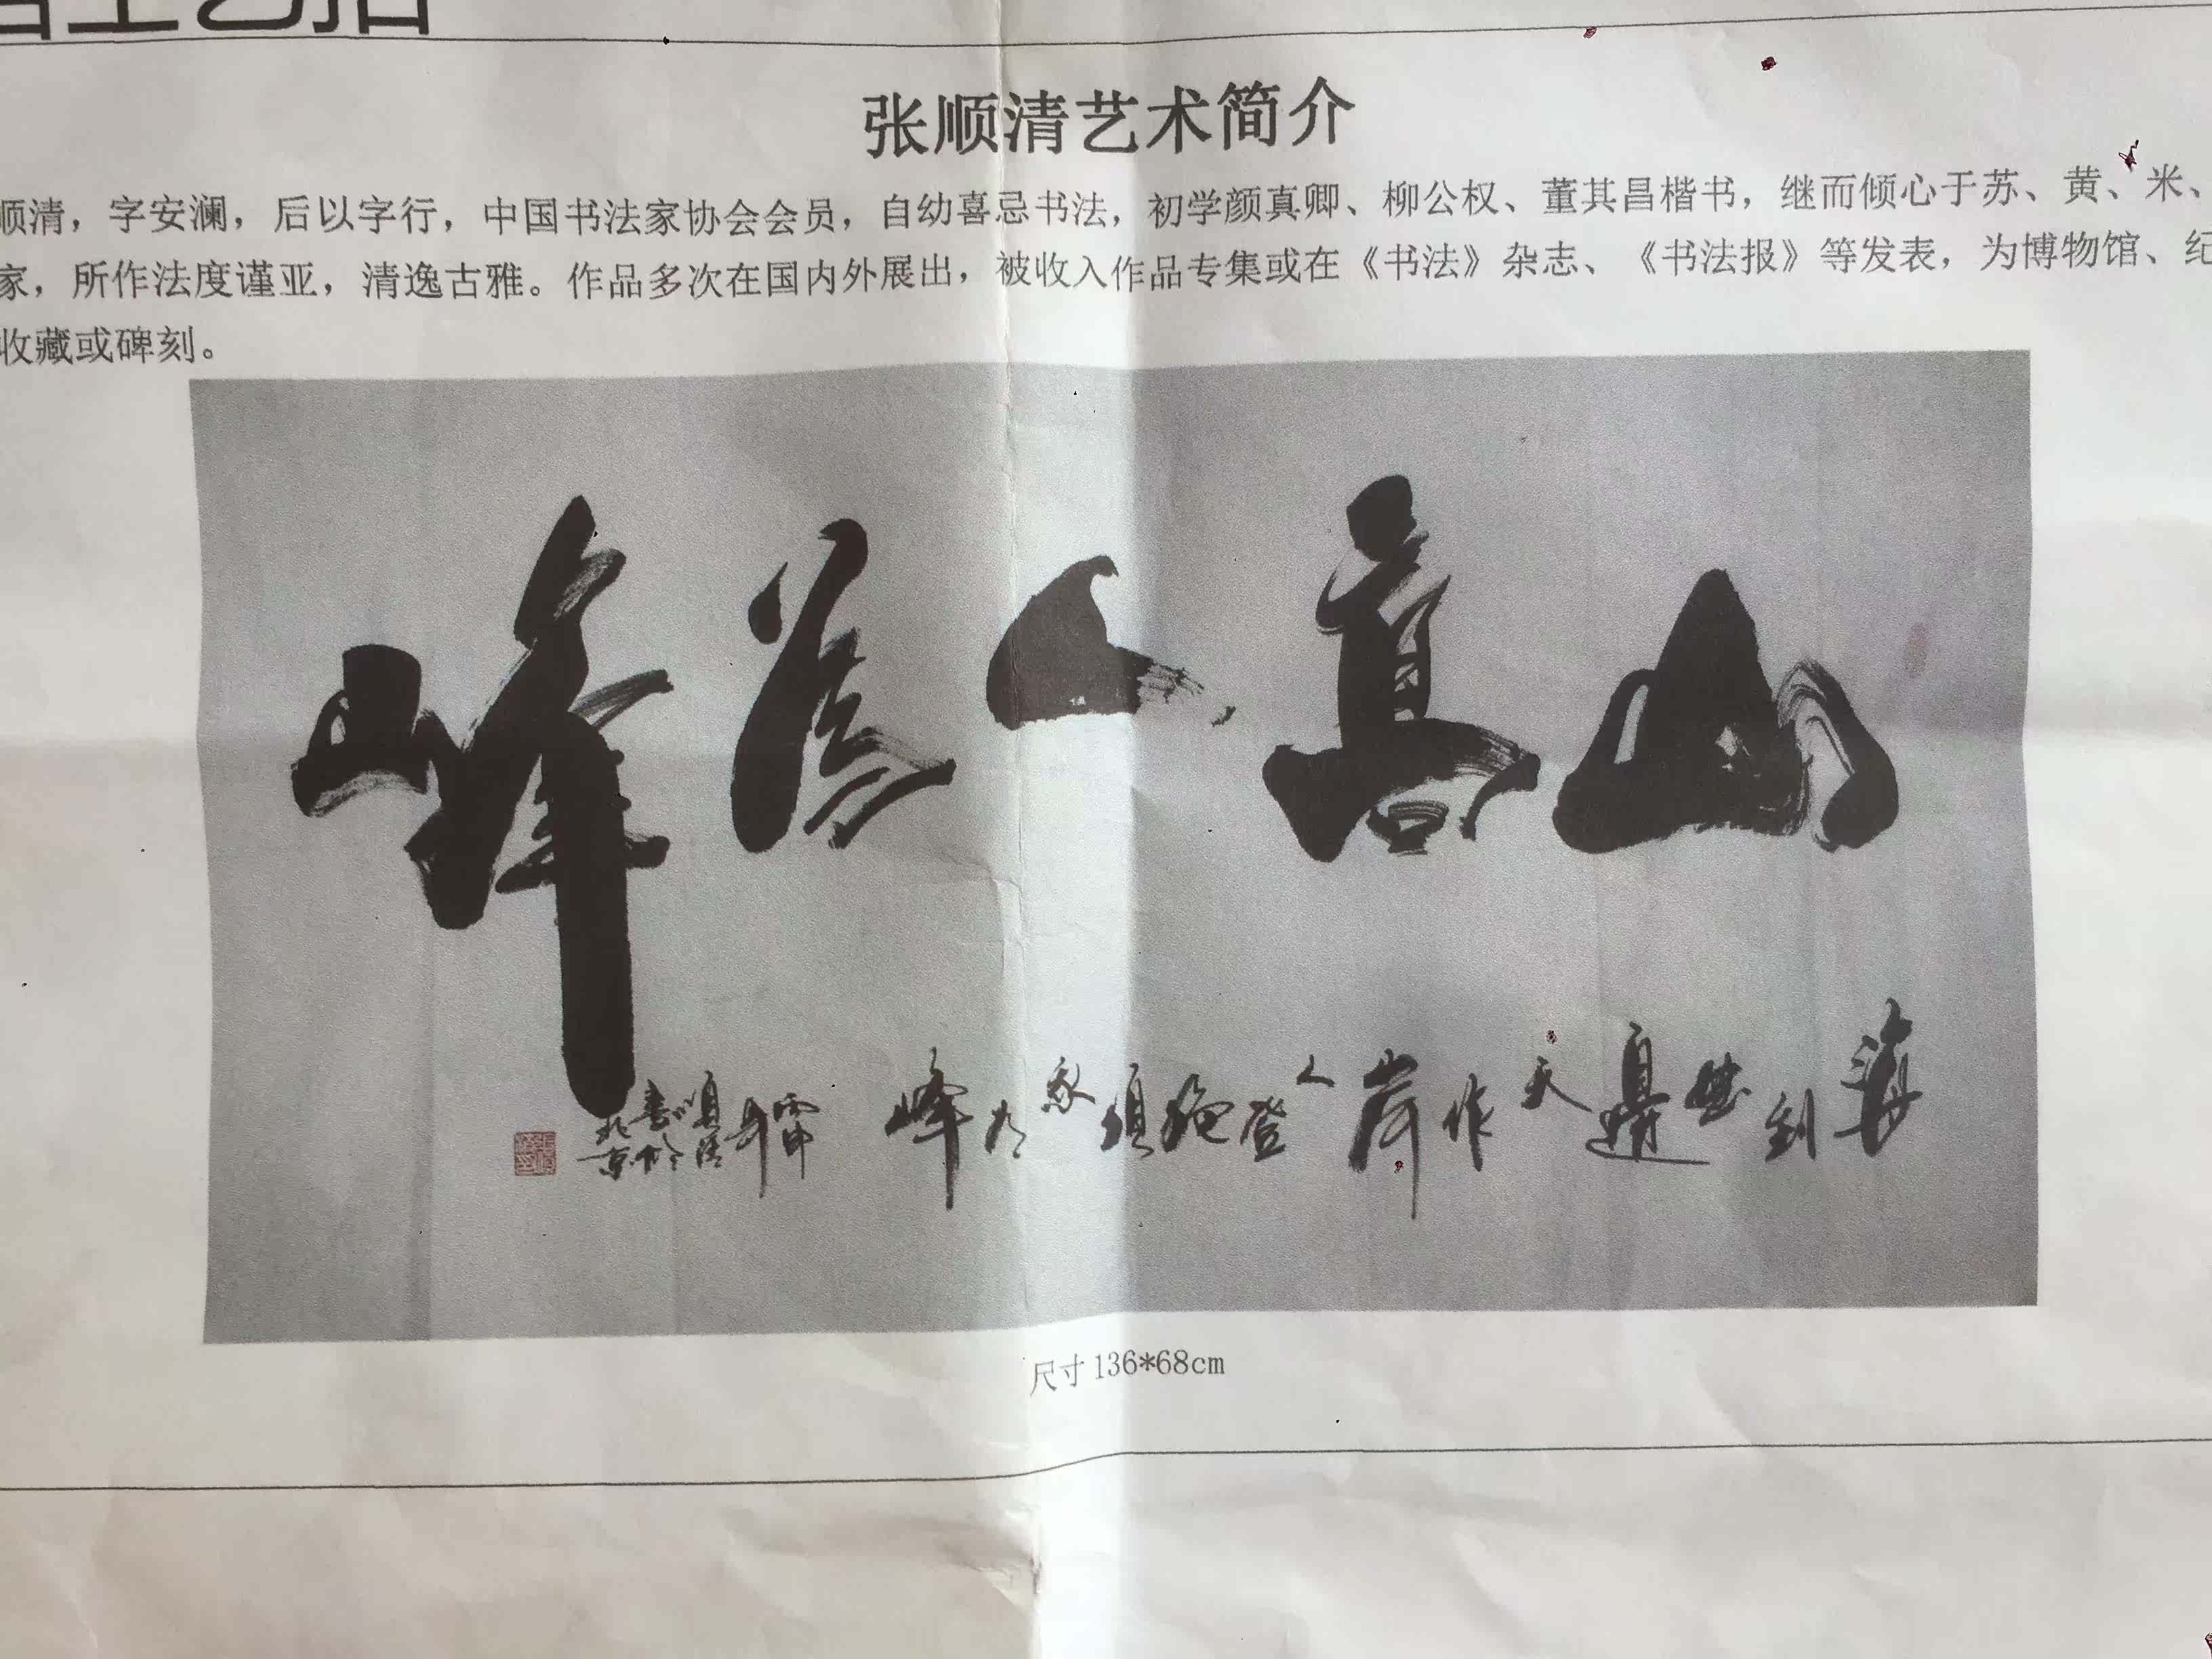 张顺清艺术简介
顺清，字安澜，后以字行，中国书法家协会会员，自幼喜忌书法，初学颜真卿、柳公权、董其昌楷书，继而倾心于苏、黄、米、
家，所作法度谨亚，清逸古雅。作品多次在国内外展出，被收入作品专集或在《书法》杂志、《书法报》等发表，为博物馆、纪
收藏或碑刻。
山高人为峰
海到无边天作岸人登绝顶我为峰
顺清书于北京
尺寸136*68cm